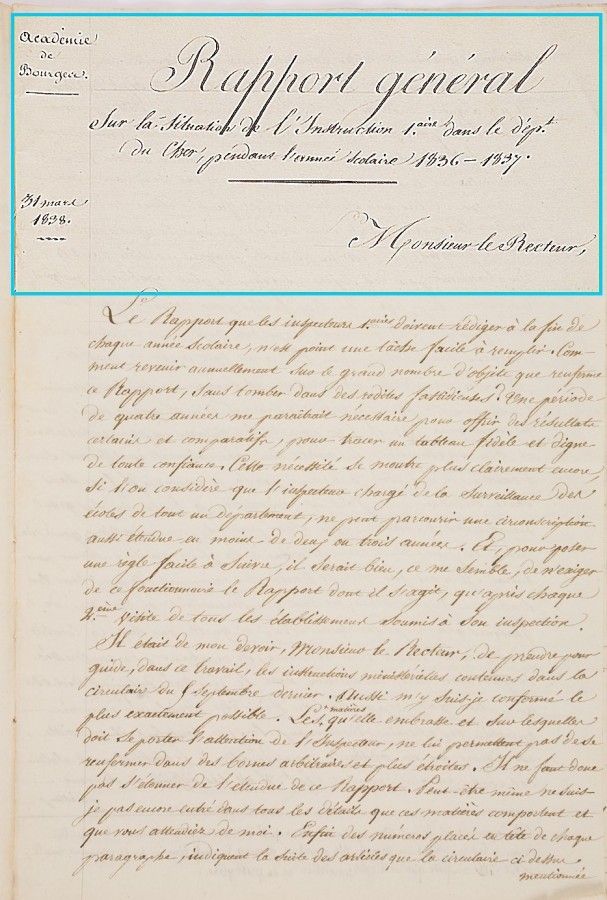 Académie
de
Bourges.
Rapport général
Sur la Situation de l'Instruction 1.aire dans le dép.t
du Cher, pendant l'année scolaire 1836 – 1837.
31 mars
1838.
Monsieur le Recteur,
Le Rapport que les inspecteurs 1.aires doivent rédiger à la fin de
chaque année scolaire, n'est point une tâche facile à remplir. Com-
ment revenir annuellement sur le grand nombre d'objets que renferme
ce Rapport, sans tomber dans des redites fastidieuses? Une période
de quatre années me paraîtrait nécessaire pour offrir des résultats
certains et comparatifs, pour tracer un tableau fidèle et digne
de toute confiance. Cette nécessité se montre plus clairement encore,
si l'on considère que l'inspecteur chargé de la Surveillance des
écoles de tout un département, ne peut parcourir une circonscription
aussi étendue en moins de deux ou trois années. Et, pour poser
une règle facile à suivre, il serait bien, ce me semble, de n'exiger
de ce fonctionnaire le Rapport dont il s'agit, qu'après chaque
2.eme visite de tous les établissemens soumis à son inspection.
Il était de mon devoir, Monsieur le Recteur, de prendre pour
guide, dans ce travail, les instructions ministérielles contenues dans la
circulaire du Septembre dernier. Aussi m'y suis-je conformé le
plus exactement possible. Les matières qu'elle embrasse et sur lesquelles
doit se porter l'attention de l'Inspecteur, ne lui permettent pas de se
renfermer dans des bornes arbitraires et plus étroites. Il ne faut donc
pas s'étonner de l'étendue de ce Rapport. Peut-être même ne suis-
je pas encore entré dans tous les détails que ces matières comportent et
que vous attendiez de moi. Enfin des numéros placés en tête de chaque
paragraphe, indiquent la suite des articles que la circulaire ci dessus
mentionnée